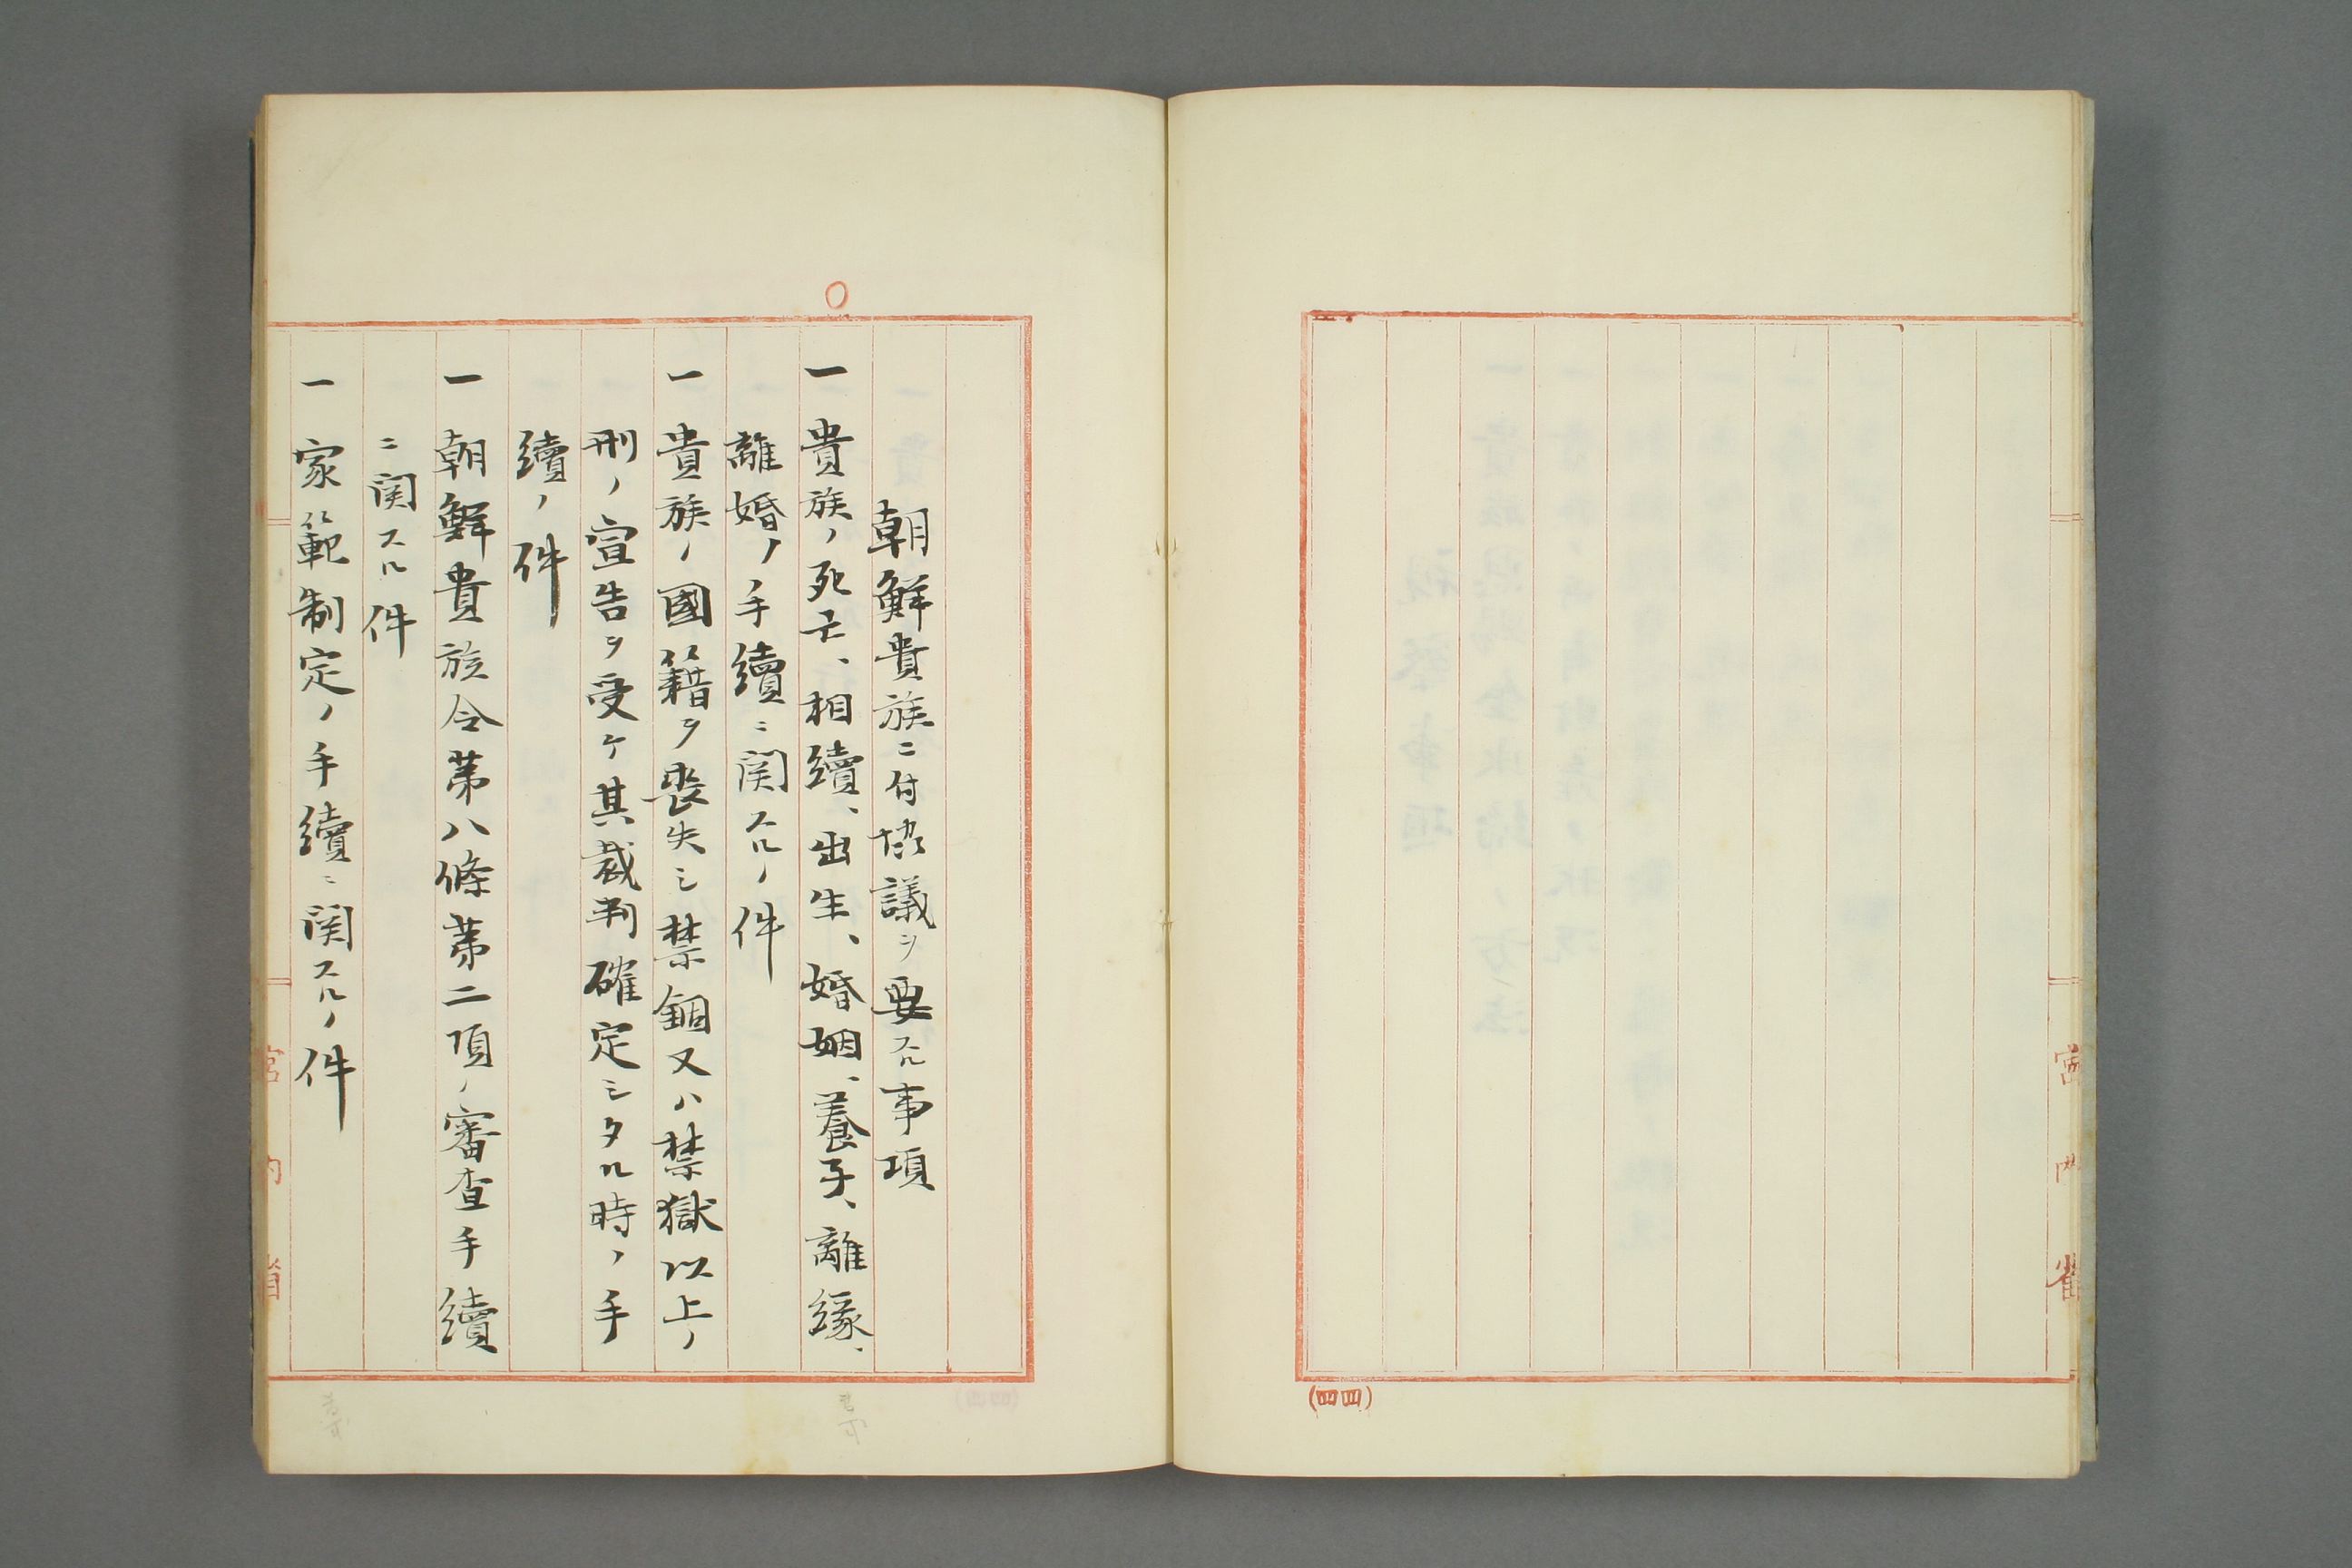 宮内省
(四四)
朝鮮貴族ニ付協議ヲ要スル事項
一貴族ノ死亡、相續、出生、婚姻、養子、離緣、
離婚ノ手續ニ関スルノ件
一貴族ノ國籍ヲ喪失シ禁錮又ハ禁獄以上ノ
刑ノ宣告ヲ受ケ其裁判確定シタル時ノ手
續ノ件
一朝鮮貴族令第八條第二項ノ審査手續
ニ関スル件
一家範制定ノ手續ニ関スルノ件
宮内省